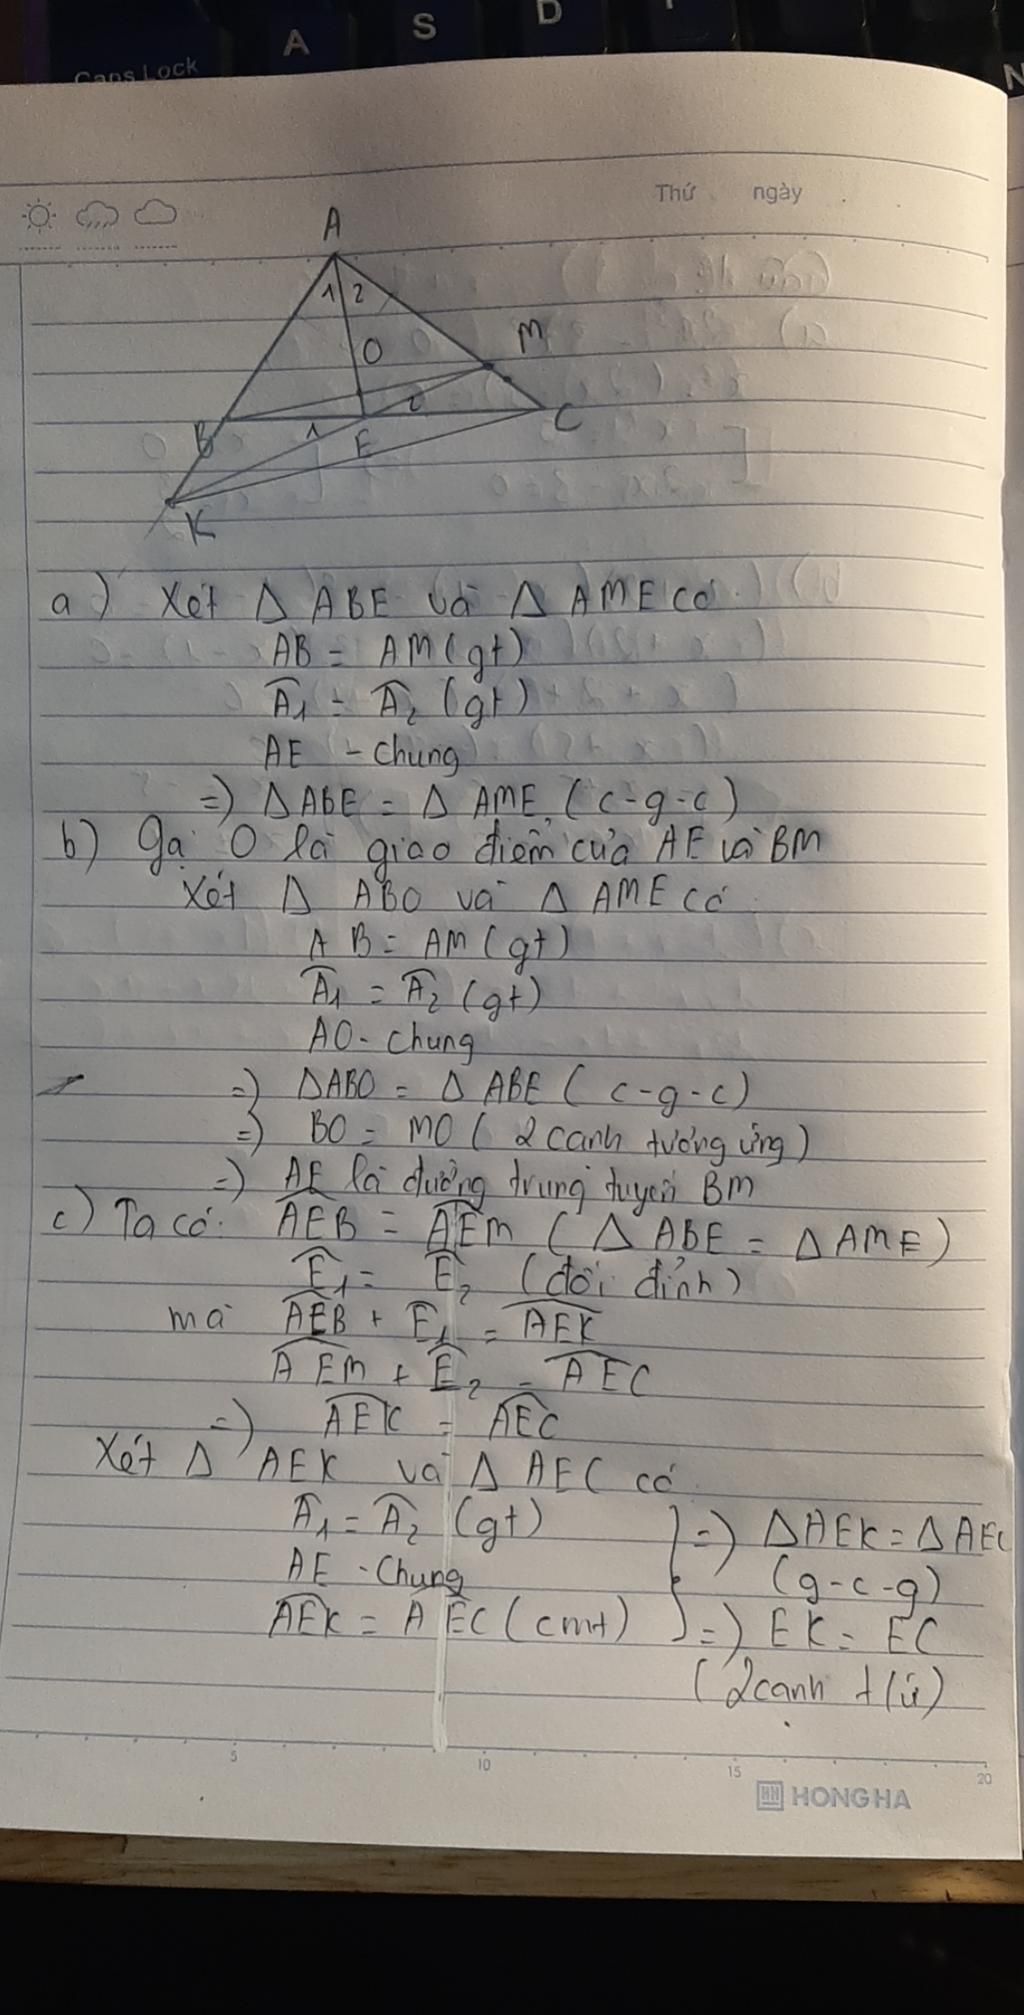 A
S
D
Caps Lock
N
Thứ ngày
A
1 2
O
M
2
B
1
E
C
K
a) Xét Δ ABE và Δ AME có
AB = AM (gt)
Â1 = Â2 (gt)
AE - Chung
=) Δ ABE = Δ AME (c-g-c)
b) Gọi O là giao điểm của AE và BM
Xét Δ ABO và Δ AME có
AB = AM (gt)
Â1 = Â2 (gt)
AO - Chung
=) ΔABO = Δ ABE (c-g-c)
=) BO = MO (2 canh tương ứng)
=) AE là đường trung tuyến BM
c) Ta có: AEB = AEM (Δ ABE = Δ AME)
Ê1 = Ê2 (đối đỉnh)
mà AEB + Ê1 = AEK
AEM + Ê2 = AEC
=) AEK = AEC
Xét Δ AEK và Δ AEC có
Â1 = Â2 (gt)
=) ΔAEK = ΔAEC
AE - Chung
(g-c-g)
AEK = AEC (cmt)
=) EK = EC
(2 canh t/ứ)
5 10 15 20
HH HONG HA